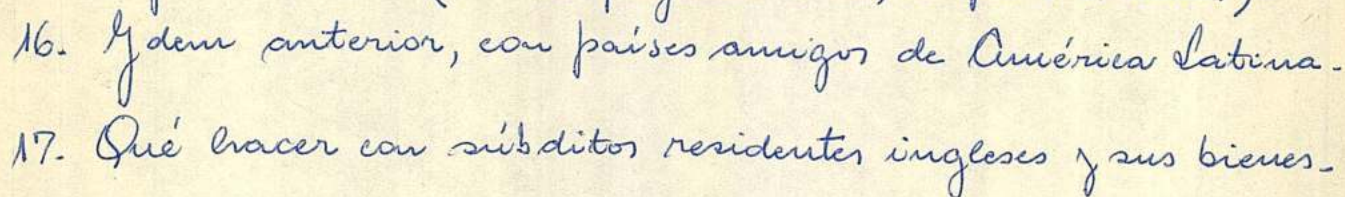 16. Ydem anterior, con países amigos de América Latina.
17. Qué hacer con súbditos residentes ingleses y sus bienes.